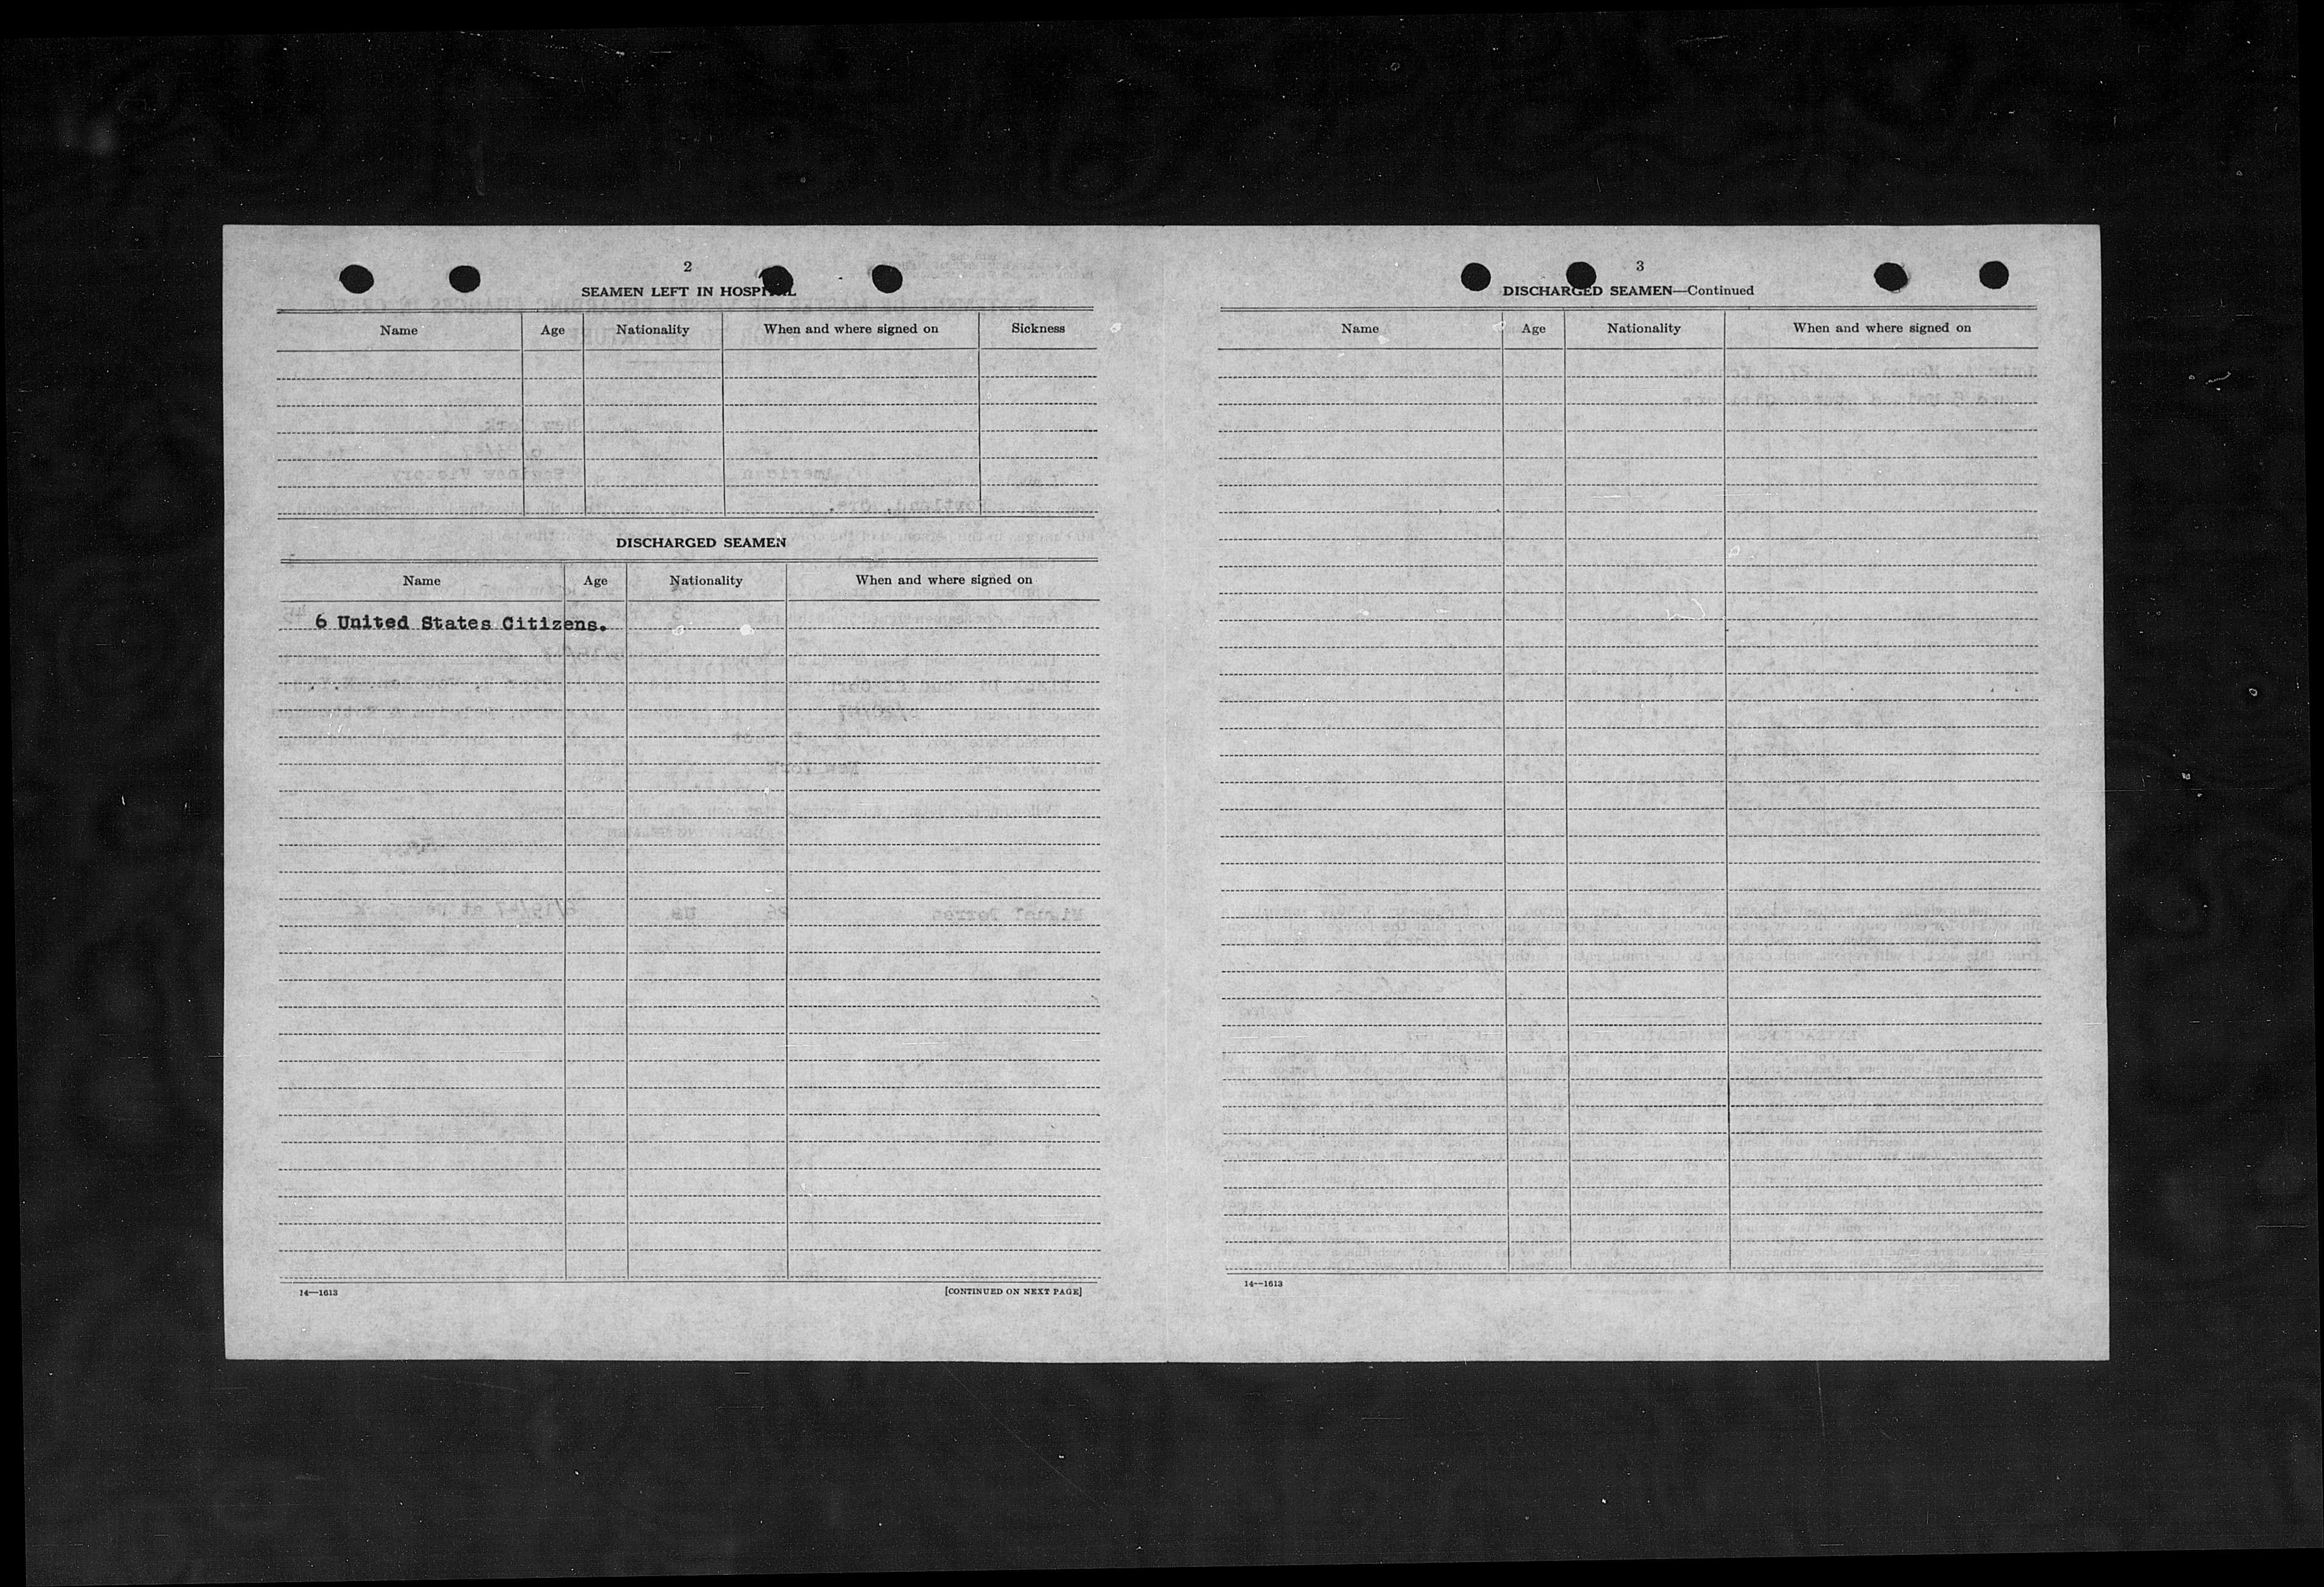 2
SEAMEN LEFT IN HOSPITAL
Name Age Nationality When and where signed on Sickness
DISCHARGED SEAMEN
Name Age Nationality When and where signed on
6 United States Citizens.
14—1613 [CONTINUED ON NEXT PAGE]
3
DISCHARGED SEAMEN—Continued
Name Age Nationality When and where signed on
14—1613